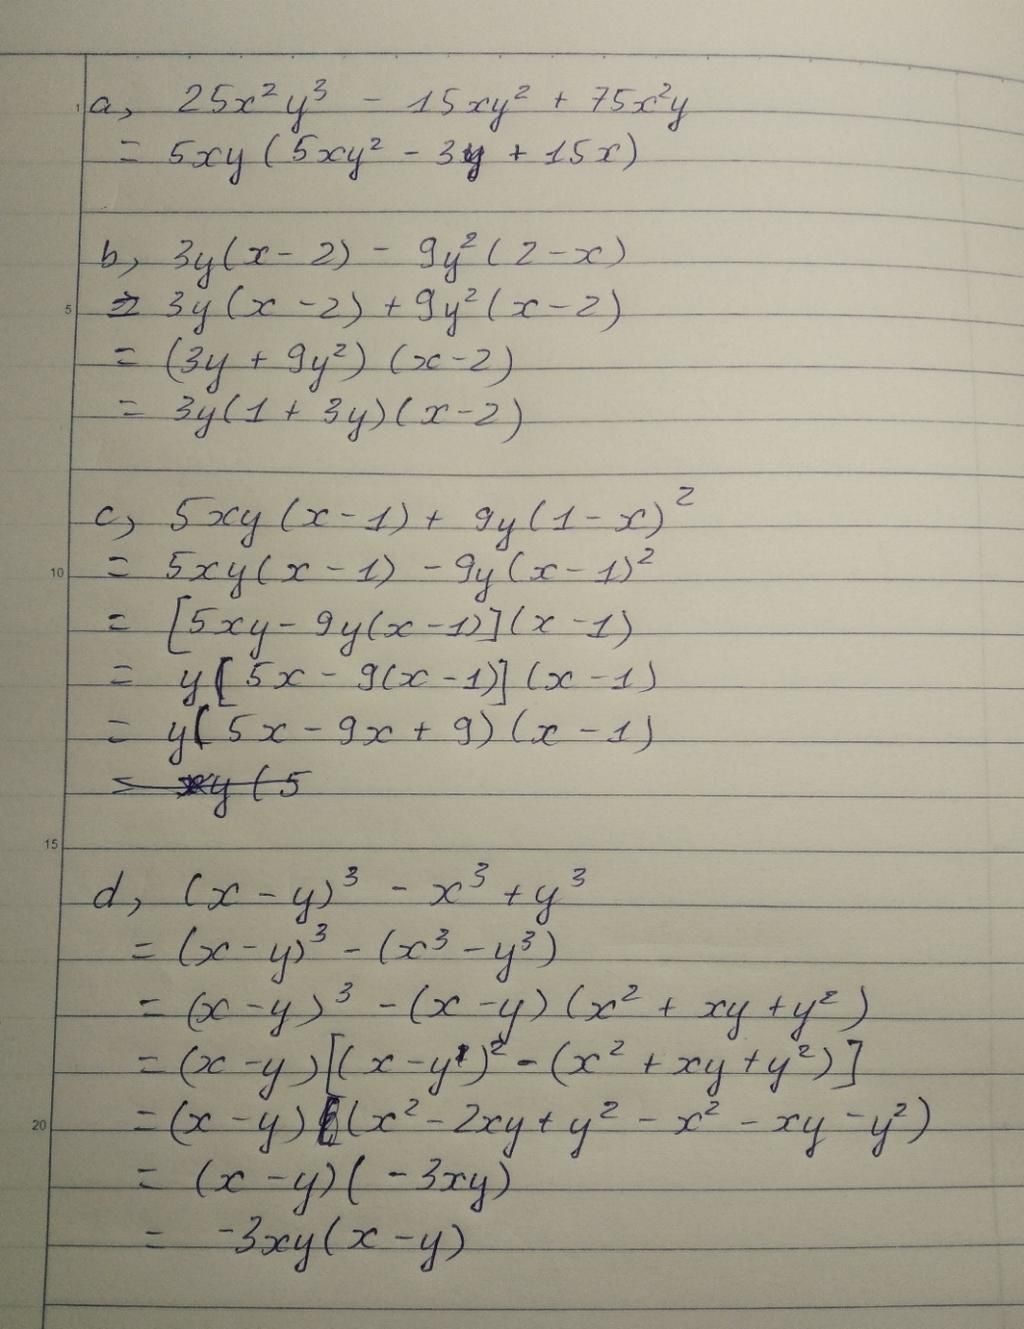 a, 25x²y³ - 15xy² + 75x²y
= 5xy(5xy² - 3y + 15x)
b, 3y(x-2) - 9y²(2-x)
= 3y(x-2) + 9y²(x-2)
= (3y + 9y²)(x-2)
= 3y(1+3y)(x-2)
c, 5xy(x-1) + 9y(1-x)²
= 5xy(x-1) - 9y(x-1)²
= [5xy - 9y(x-1)](x-1)
= y[5x - 9(x-1)](x-1)
= y(5x - 9x + 9)(x-1)
d, (x-y)³ - x³ + y³
= (x-y)³ - (x³ - y³)
= (x-y)³ - (x-y)(x² + xy + y²)
= (x-y)[(x-y)² - (x² + xy + y²)]
= (x-y)(x² - 2xy + y² - x² - xy - y²)
= (x-y)(-3xy)
= -3xy(x-y)
1
5
10
15
20